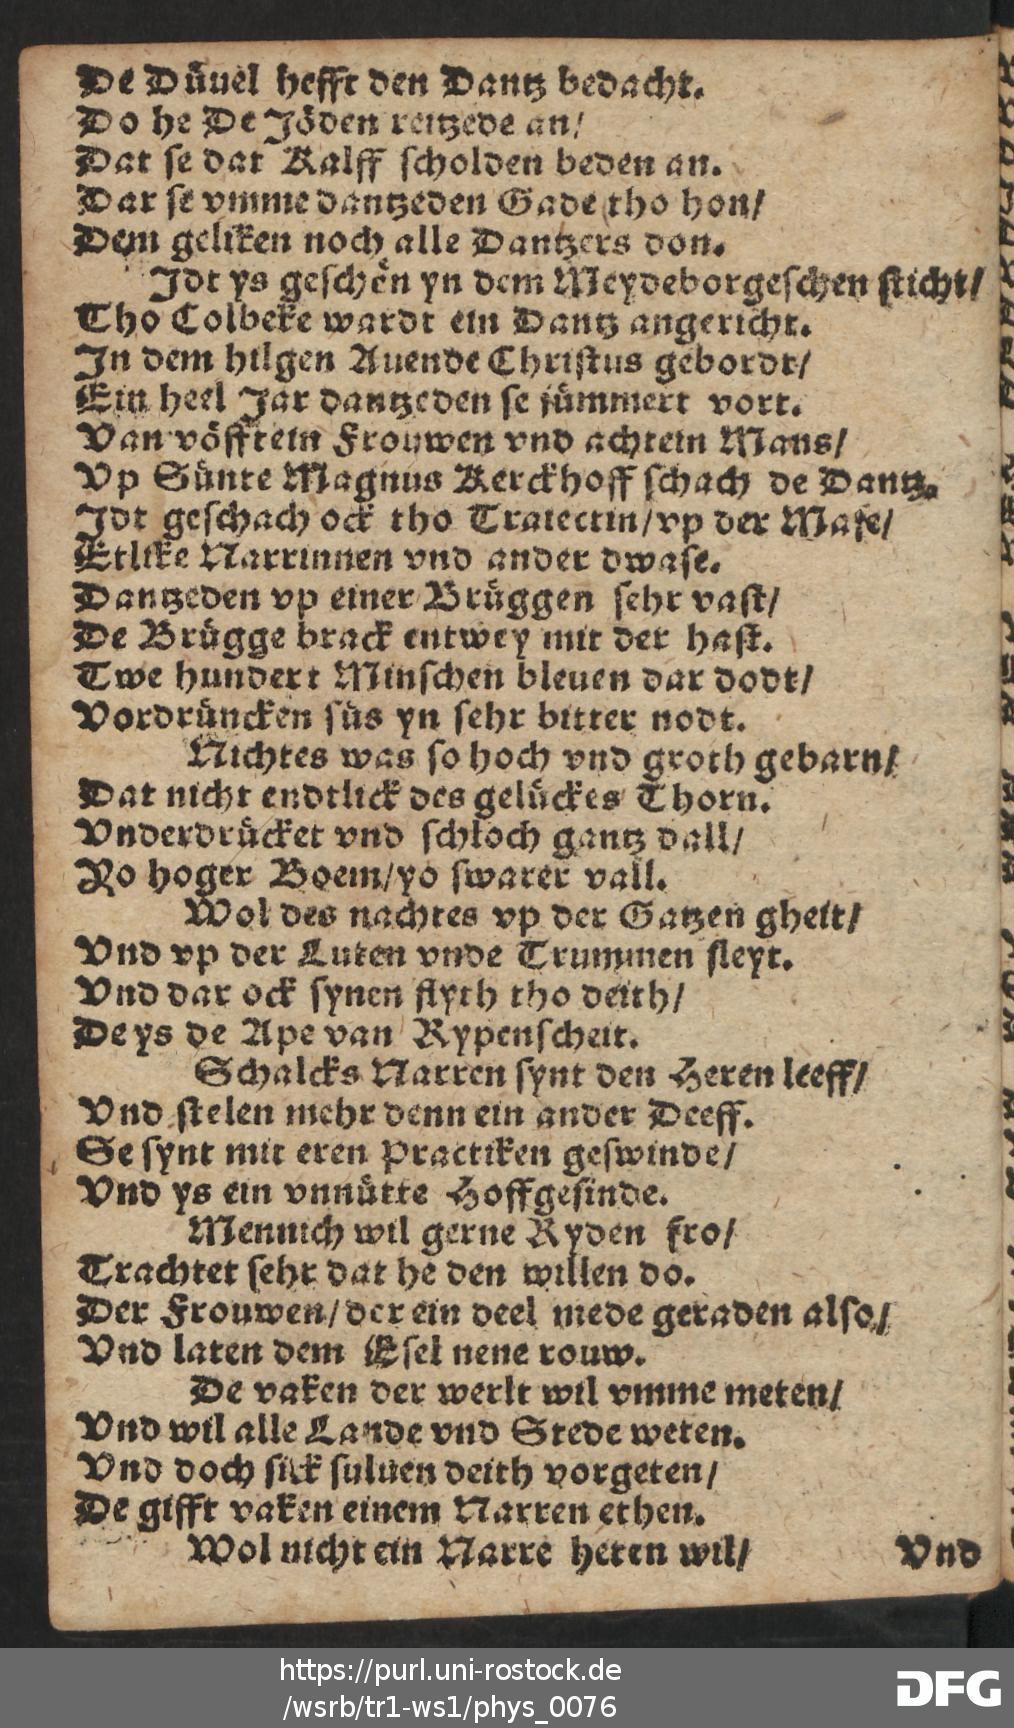 De Düuel hefft den Dantz bedacht.
Do he De Jöden reitzede an/
Dat se dat Kalff scholden beden an.
Dar se vmme dantzeden Gade tho hon/
Dem geliken noch alle Dantzers don.
Jdt ys geschên yn dem Meydeborgeschen sticht/
Tho Colbeke wardt ein Dantz angericht.
In dem hilgen Auende Christus gebordt/
Ein heel Jar dantzeden se jümmert vort.
Van vöfftein Frouwen vnd achtein Mans/
Vp Sünte Magnus Kerckhoff schach de Dantz.
Jdt geschach ock tho Traiectin/vp der Mase/
Etlike Narrinnen vnd ander dwase.
Dantzeden vp einer Brüggen sehr vast/
De Brügge brack entwey mit der hast.
Twe hundert Minschen bleuen dar dodt/
Vordrüncken süs yn sehr bitter nodt.
Nichtes was so hoch vnd groth gebarn/
Dat nicht endtlick des gelückes Thorn.
Vnderdrücket vnd schloch gantz dall/
Yo hoger Boem/yo swarer vall.
Wol des nachtes vp der Gatzen gheit/
Vnd vp der Luten vnde Trummen sleyt.
Vnd dar ock synen flyth tho deith/
De ys de Ape van Rypenscheit.
Schalcks Narren synt den Heren leeff/
Vnd stelen mehr denn ein ander Deeff.
Se synt mit eren Practiken geswinde/
Vnd ys ein vnnütte Hoffgesinde.
Mennich wil gerne Ryden fro/
Trachtet sehr dat he den willen do.
Der Frouwen/der ein deel mede geraden also/
Vnd laten dem Esel nene rouw.
De vaken der werlt wil vmme meten/
Vnd wil alle Lande vnd Stede weten.
Vnd doch sick suluen deith vorgeten/
De gifft vaken einem Narren ethen.
Wol nicht ein Narre heten wil/
Vnd
https://purl.uni-rostock.de
/wsrb/tr1-ws1/phys_0076
DFG